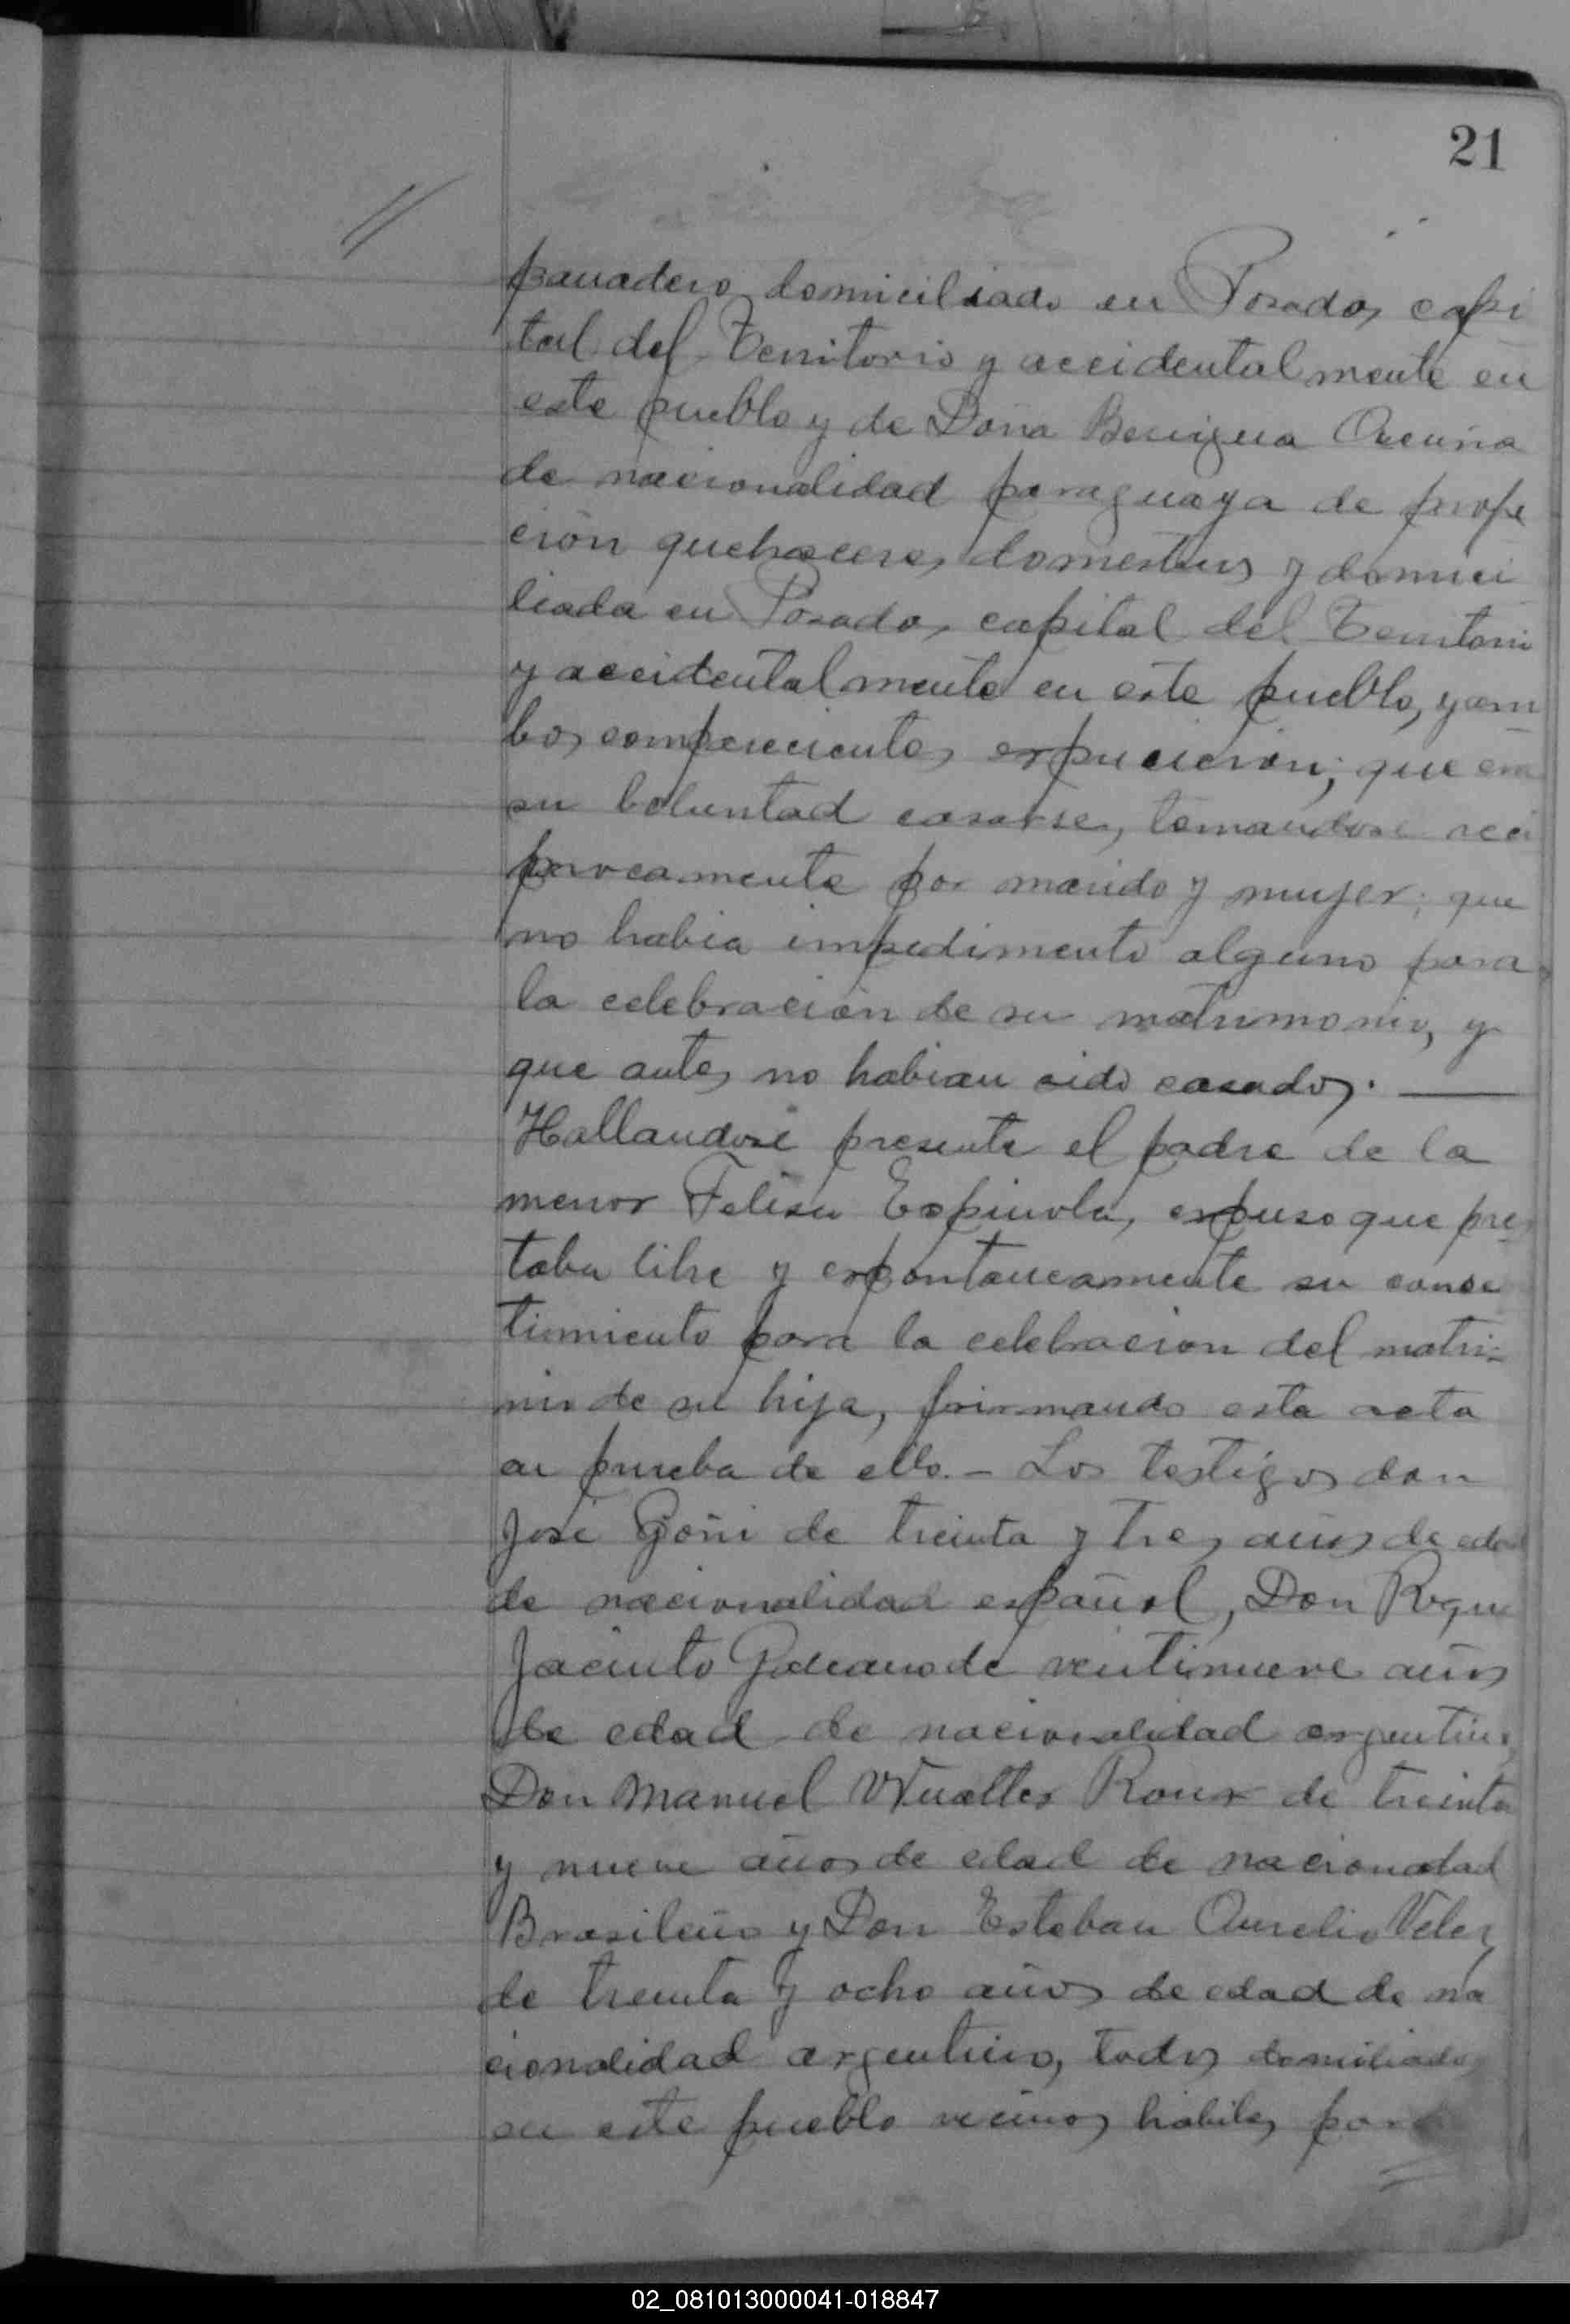 21
panadero domiciliado en Posadas capi
tal del Territorio y accidentalmente en
este pueblo y de Doña Benigna Acuña
de nacionalidad paraguaya de profe
ción quehaceres domesticos y domici
liada en Posadas, capital del Territorio
y accidentalmente en este pueblo, y am
bos comparecientes expucieron; que era
su boluntad casarse, tomandose reci
procamente por marido y mujer; que
no habia impedimento alguno para
la celebración de su matrimonio, y
que antes no habian sido casados. —
Hallandose presente el padre de la
menor Felisa Espinola, expuso que pres
taba libre y expontaneamente su conse
timiento para la celebracion del matri-
nio de su hija, firmando esta acta
en prueba de ello. - Los testigos don
José Goñi de treinta y tres años de edad
de nacionalidad español, Don Roque
Jacinto de ventinueve años
de edad de nacionalidad argentino,
Don Manuel Wualter Roux de treinta
y nueve años de edad de nacionadad
Brasileño y Don Esteban Aurelio Velez
de treinta y ocho años de edad de na
cionalidad argentino, todos domiciliados
en este pueblo vecinos habiles para
02_081013000041-018847